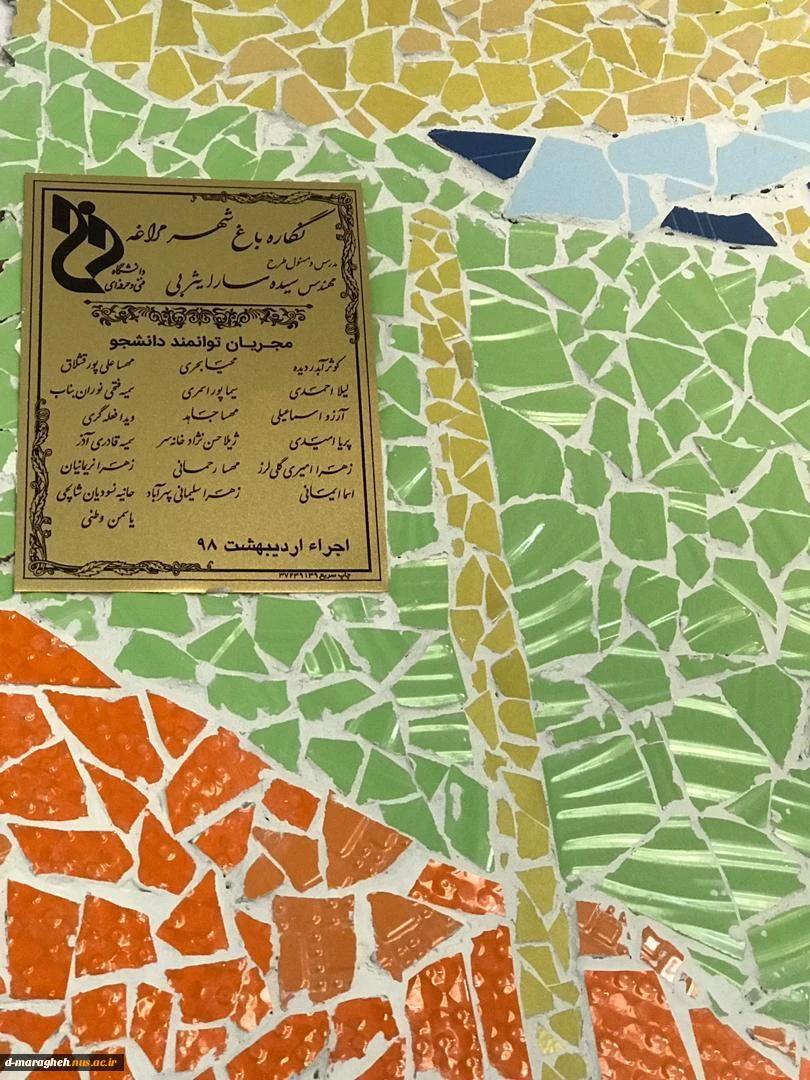 نگاره باغ شهر مراغه
دانشگاه
فنی و حرفه‌ای
مدرس و مسئول طرح
مهندس سیده سارا یثربی
مجریان توانمند دانشجو
کوثر آبدر دیده محیا بحری مهسا علی پور قشلاق
لیلا احمدی سیما پور امری سمیه فتحی نوران بناب
آرزو اسماعیلی مهسا جاهد ویدا فعله گری
پریا امیدی ژیلا حسن نژاد خانه سر سمیه قادری آذر
زهرا امیری گلی لرز مهسا رحمانی زهرا نریمانیان
اسما ایمانی زهرا سلیمانی پهرآباد حانیه نسودیان شاپچی
یاسمن وطنی
اجراء اردیبهشت ۹۸
چاپ سریع ۳۷۲۳۹۱۳۹
d-maragheh.nus.ac.ir